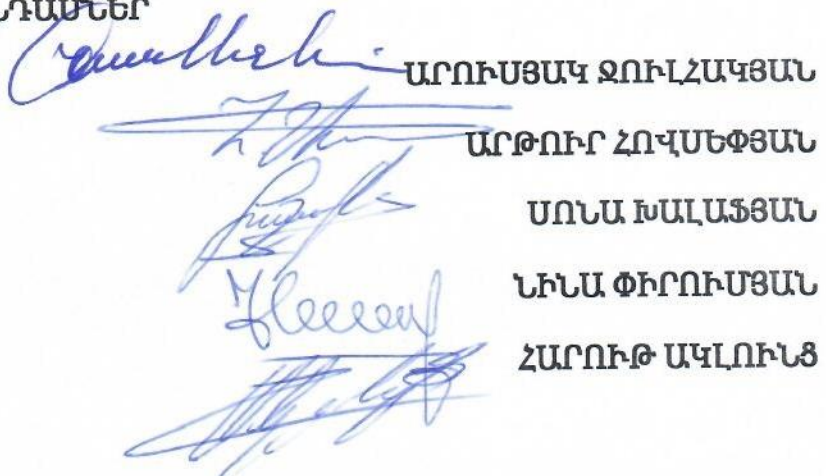 ԱՆԴԱՄՆԵՐ
ԱՐՈՒՍՅԱԿ ՋՈՒԼՀԱԿՅԱՆ
ԱՐԹՈՒՐ ՀՈՎՍԵՓՅԱՆ
ՍՈՆԱ ԽԱԼԱՖՅԱՆ
ՆԻՆԱ ՓԻՐՈՒՄՅԱՆ
ՀԱՐՈՒԹ ԱԿԼՈՒՆՑ